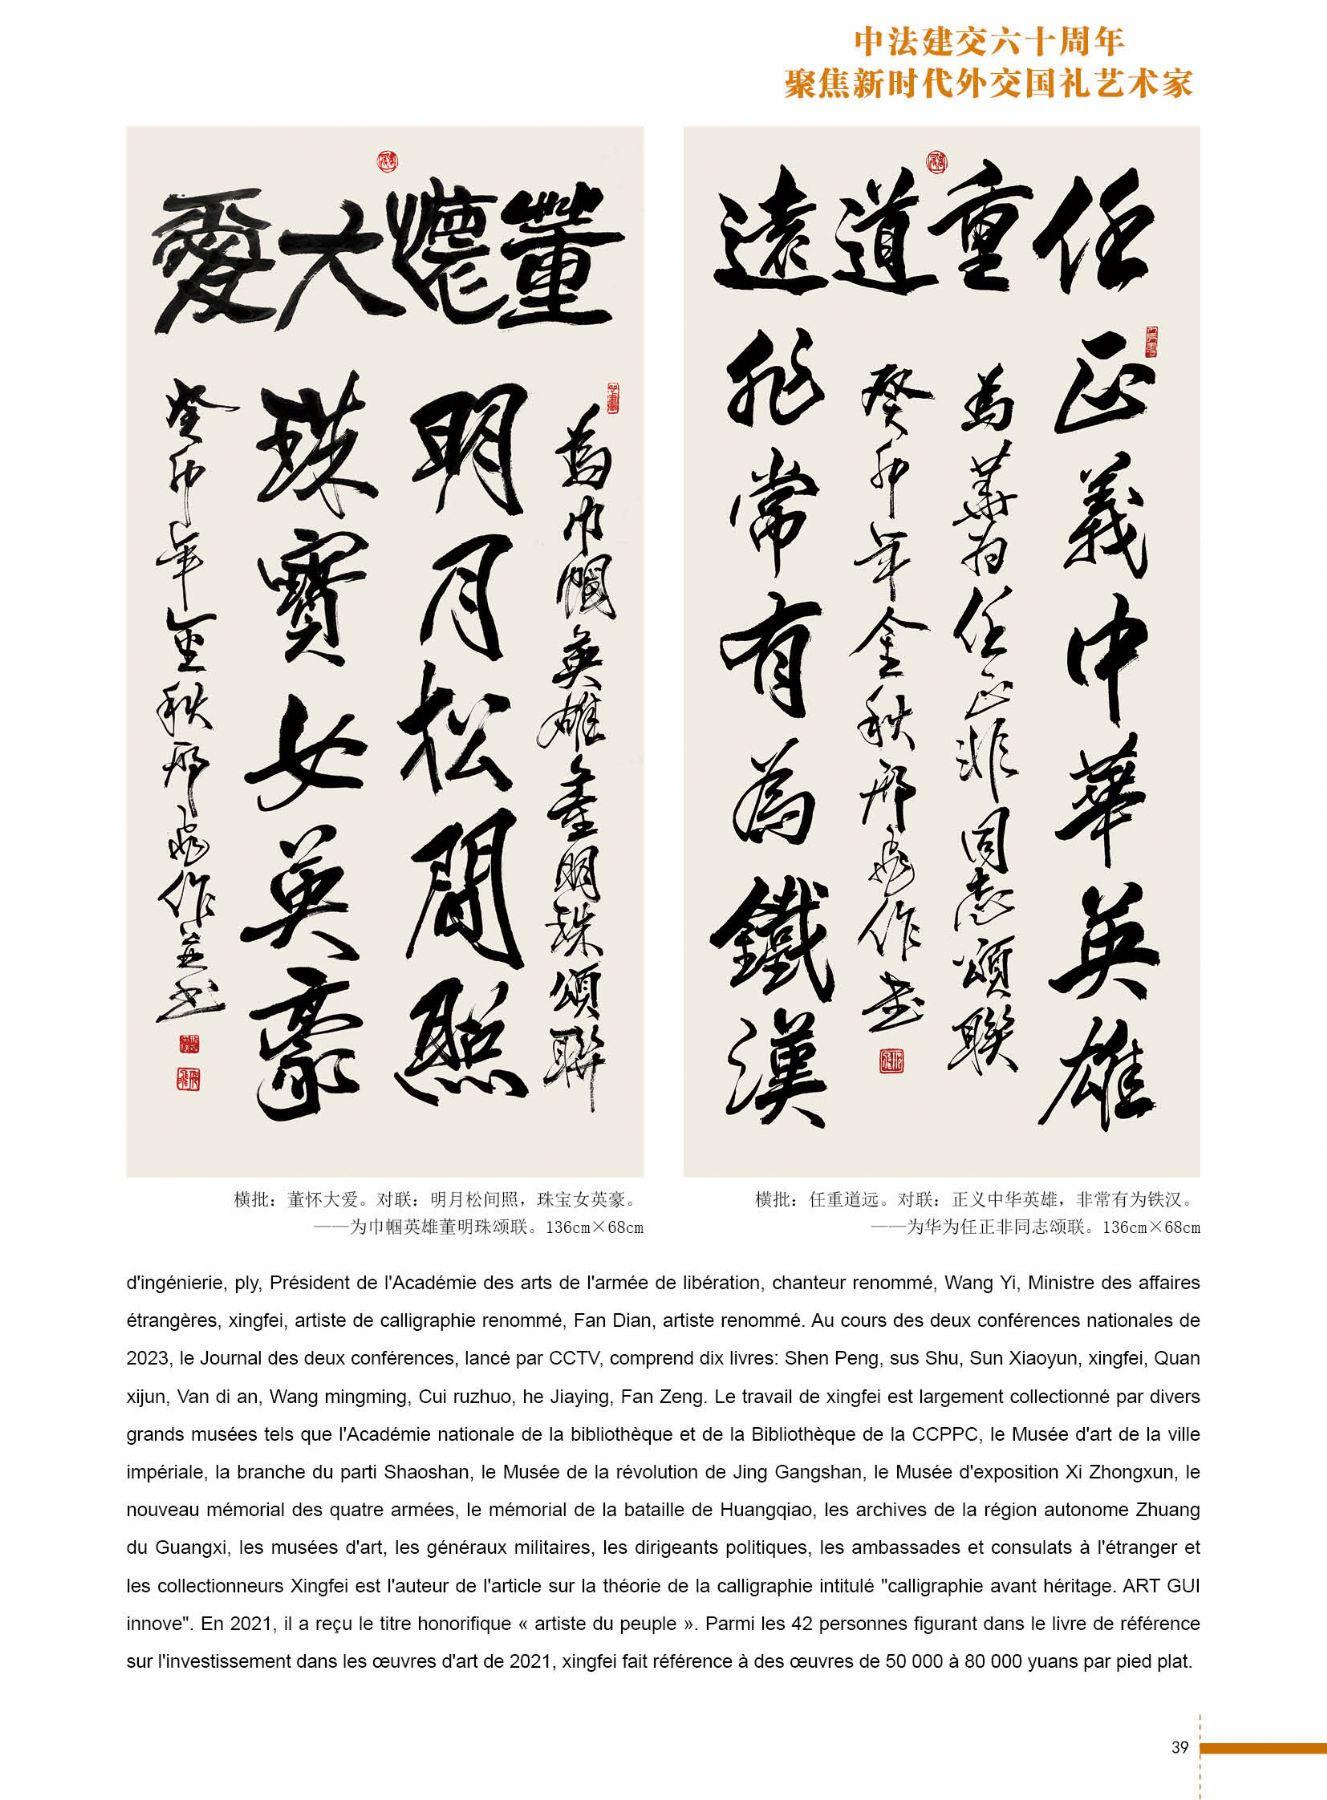 中法建交六十周年
聚焦新时代外交国礼艺术家
董懷大愛
為巾幗英雄董明珠頌聯
明月松間照
珠寶女英豪
癸卯年金秋邢飛作並书
横批：董怀大爱。对联：明月松间照，珠宝女英豪。
——为巾帼英雄董明珠颂联。136cm×68cm
任重道遠
正義中華英雄
為華为任正非同志頌聯
癸卯年金秋邢飛作書
非常有為鐵漢
横批：任重道远。对联：正义中华英雄，非常有为铁汉。
——为华为任正非同志颂联。136cm×68cm
d'ingénierie, ply, Président de l'Académie des arts de l'armée de libération, chanteur renommé, Wang Yi, Ministre des affaires
étrangères, xingfei, artiste de calligraphie renommé, Fan Dian, artiste renommé. Au cours des deux conférences nationales de
2023, le Journal des deux conférences, lancé par CCTV, comprend dix livres: Shen Peng, sus Shu, Sun Xiaoyun, xingfei, Quan
xijun, Van di an, Wang mingming, Cui ruzhuo, he Jiaying, Fan Zeng. Le travail de xingfei est largement collectionné par divers
grands musées tels que l'Académie nationale de la bibliothèque et de la Bibliothèque de la CCPPC, le Musée d'art de la ville
impériale, la branche du parti Shaoshan, le Musée de la révolution de Jing Gangshan, le Musée d'exposition Xi Zhongxun, le
nouveau mémorial des quatre armées, le mémorial de la bataille de Huangqiao, les archives de la région autonome Zhuang
du Guangxi, les musées d'art, les généraux militaires, les dirigeants politiques, les ambassades et consulats à l'étranger et
les collectionneurs Xingfei est l'auteur de l'article sur la théorie de la calligraphie intitulé "calligraphie avant héritage. ART GUI
innove". En 2021, il a reçu le titre honorifique « artiste du peuple ». Parmi les 42 personnes figurant dans le livre de référence
sur l'investissement dans les œuvres d'art de 2021, xingfei fait référence à des œuvres de 50 000 à 80 000 yuans par pied plat.
39